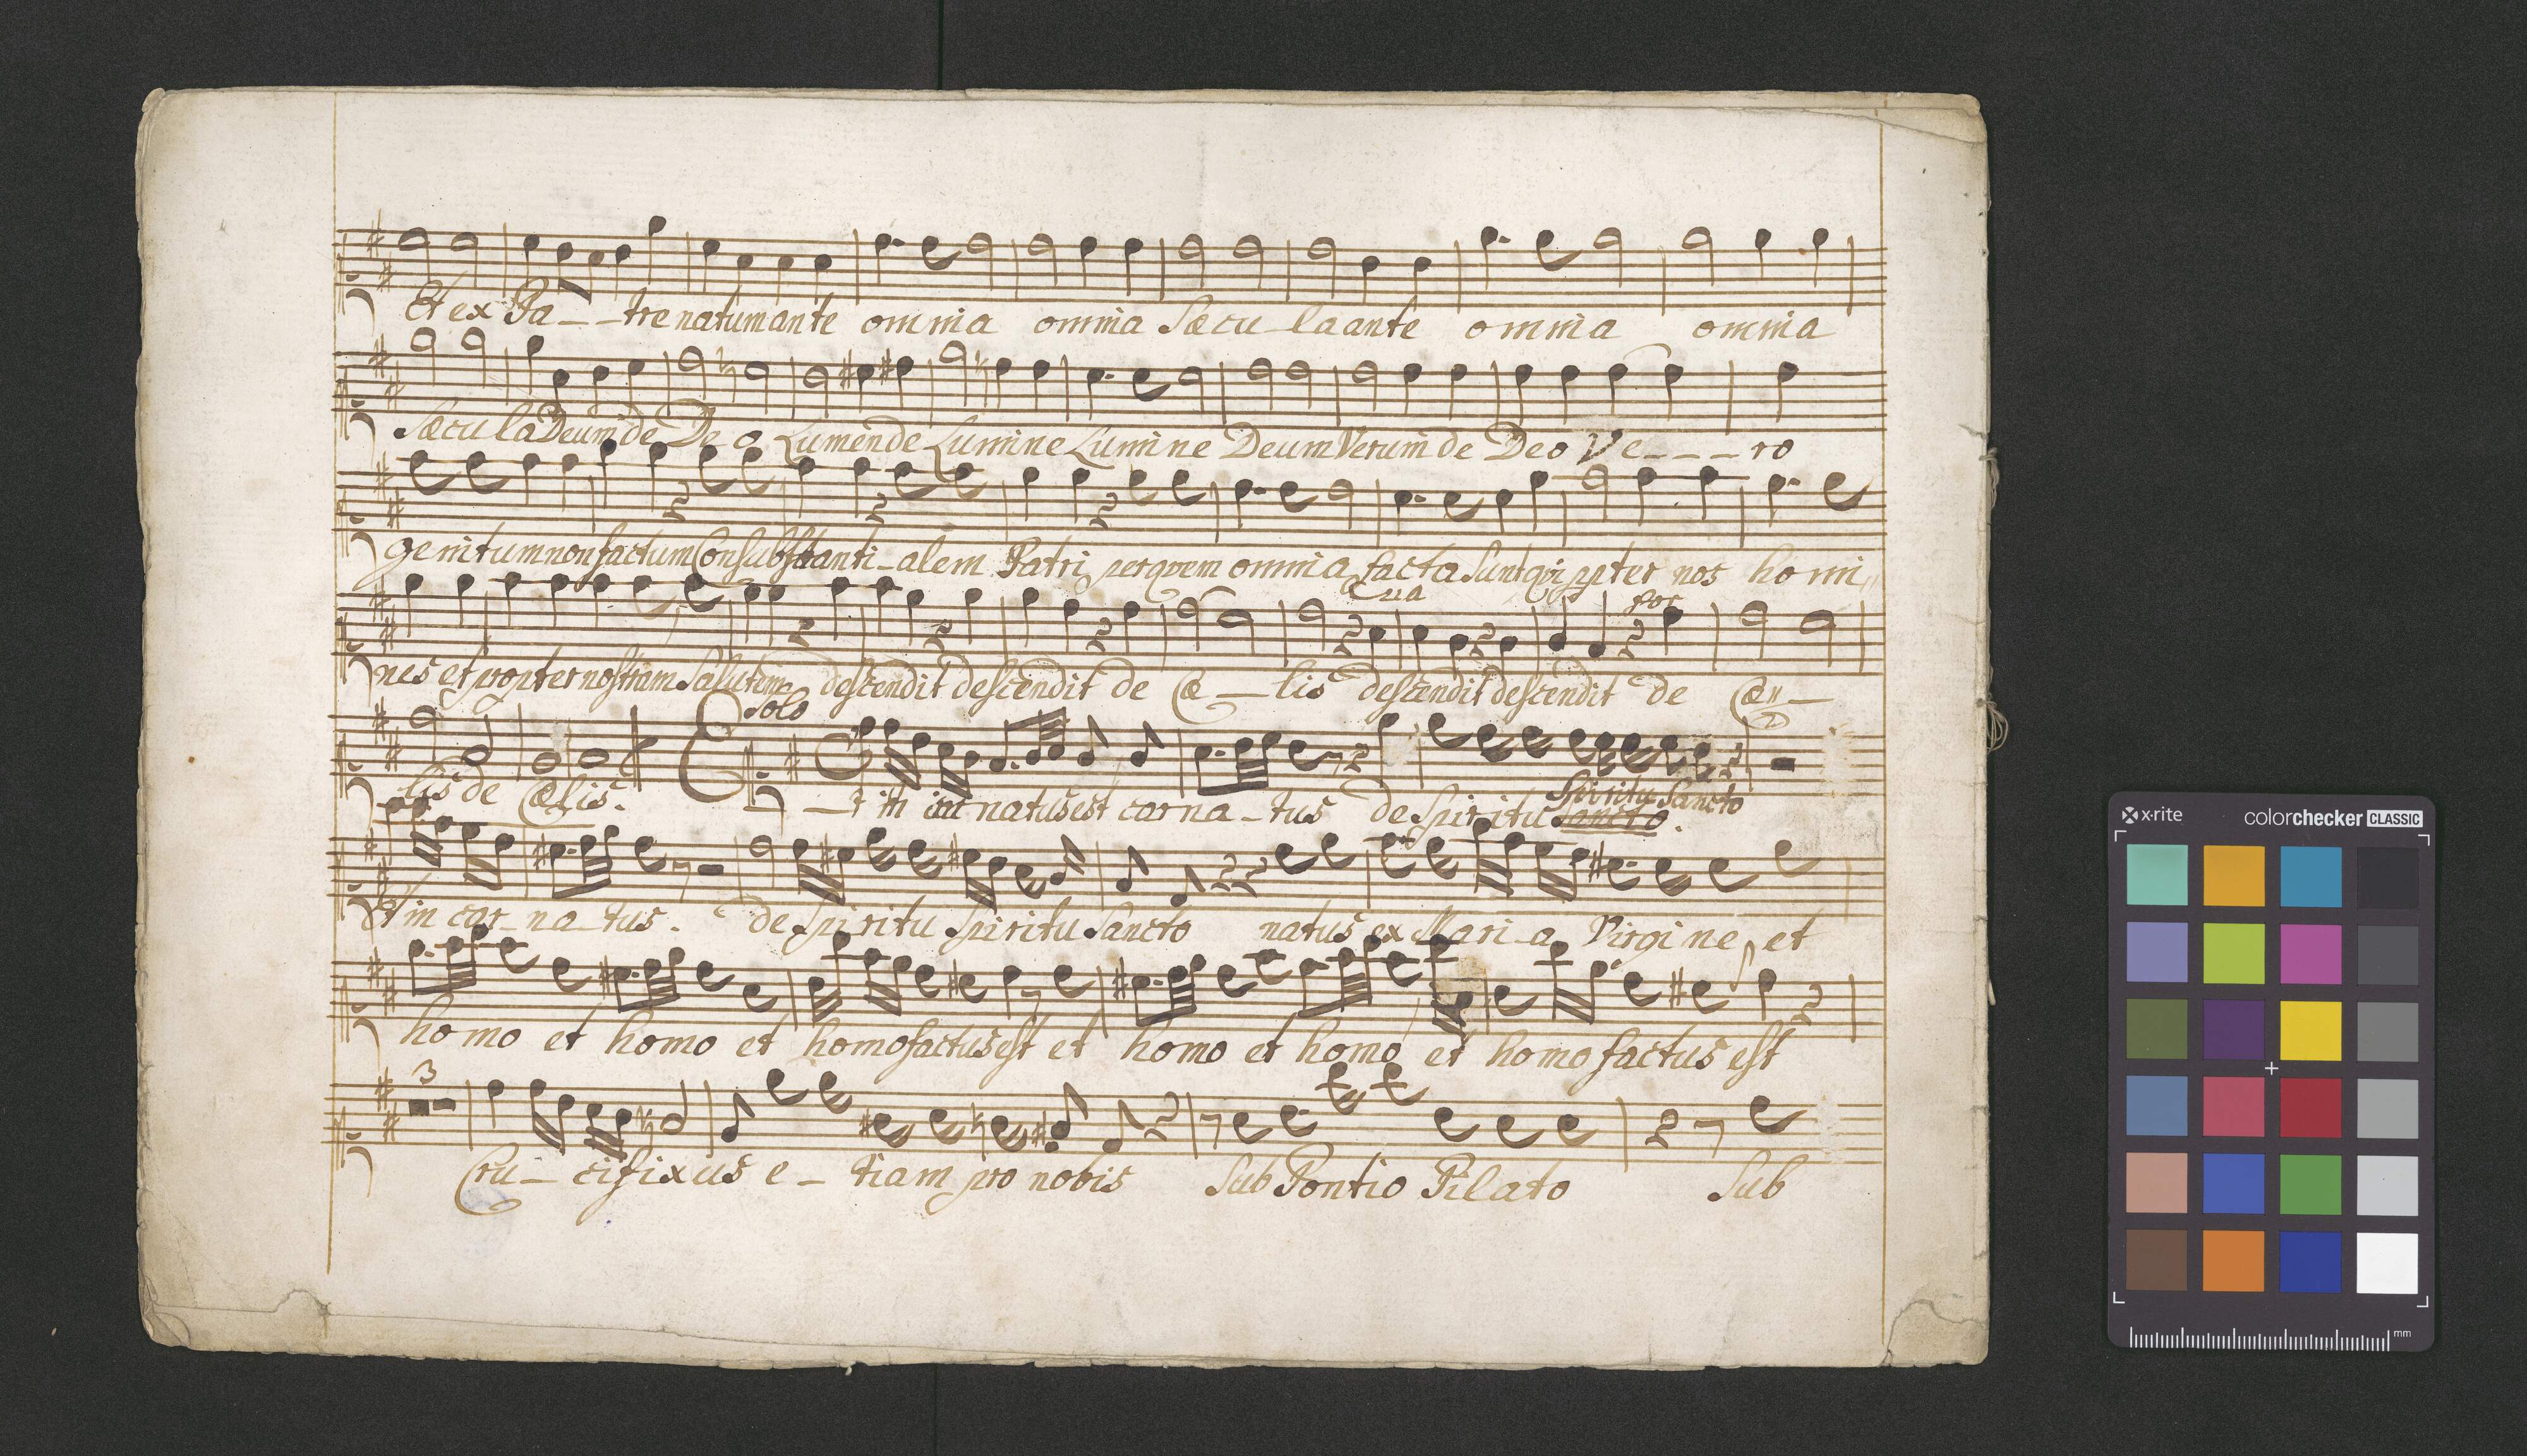 Et ex Pa--tre natum ante omnia omnia Sæcu-la ante omnia omnia
Sæcu la Deum de De o Lumen de Lumine Lumine Deum Verum de Deo Ve---ro
genitum non factum Consubstanti-alem Patri per qvem omnia facta Sunt qvi ppter nos homi
nes et propter nostram Salutem descendit descendit de Cæ-lis descendit descendit de Cæ-
Solo
lis de Cælis. Et in natus est carna-tus de Spiritu Spiritu Sancto
Sancto.
Et in car-na-tus. de Spiritu Spiritu Sancto natus ex Mari-a Virgine et
homo et homo et homo factus est et homo et homo et homo factus est
3
Cru-cifixus e-tiam pro nobis Sub Pontio Pilato Sub
x-rite colorchecker CLASSIC
mm